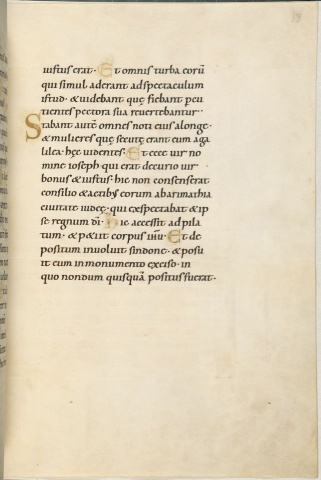 iustus erat · Et omnis turba eorū
qui simul aderant ad spectaculum
istud · & uidebant quę fiebant pcu
tientes pectora sua reuertebantur ·
Stabant autē omnes noti eius a longe ·
& mulieres quę secutę erant eum a ga
lilea · hęc uidentes · Et ecce uir no
mine ioseph qui erat decurio uir
bonus & iustus · hic non consenserat
consilio & actibus eorum ab arimathia
ciuitate iudeę · qui exspectabat & ip
se regnum dī · Hic accessit ad pila
tum · & petiit corpus ihū · Et de
positum inuoluit sindone · & posu
it eum in monumento exciso · in
quo nondum quisquā positus fuerat ·